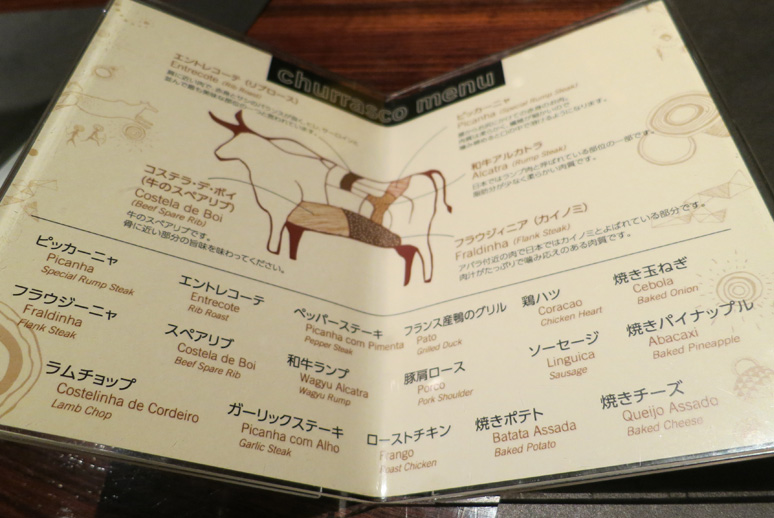 churrasco menu
エントレコーテ (リブロース)
Entrecote (Rib Roast)
コステラ・デ・ボイ
(牛のスペアリブ)
Costela de Boi
(Beef Spare Rib)
牛のスペアリブです。
骨に近い部分の旨味を味わってください。
ピッカーニャ
Picanha (Special Rump Steak)
和牛アルカトラ
Alcatra (Rump Steak)
日本ではランプ肉と呼ばれている部位の一部です。
脂肪分が少なく柔らかい肉質です。
フラウジィニア (カイノミ)
Fraldinha (Flank Steak)
アバラ付近の肉で日本ではカイノミとよばれている部分です。
肉汁がたっぷりで噛み応えのある肉質です。
ピッカーニャ
Picanha
Special Rump Steak
フラウジーニャ
Fraldinha
Flank Steak
ラムチョップ
Costelinha de Cordeiro
Lamb Chop
エントレコーテ
Entrecote
Rib Roast
スペアリブ
Costela de Boi
Beef Spare Rib
ガーリックステーキ
Picanha com Alho
Garlic Steak
ペッパーステーキ
Picanha com Pimenta
Pepper Steak
和牛ランプ
Wagyu Alcatra
Wagyu Rump
フランス産鴨のグリル
Pato
Grilled Duck
豚肩ロース
Porco
Pork Shoulder
ローストチキン
Frango
Roast Chicken
鶏ハツ
Coracao
Chicken Heart
ソーセージ
Linguica
Sausage
焼きポテト
Batata Assada
Baked Potato
焼き玉ねぎ
Cebola
Baked Onion
焼きパイナップル
Abacaxi
Baked Pineapple
焼きチーズ
Queijo Assado
Baked Cheese